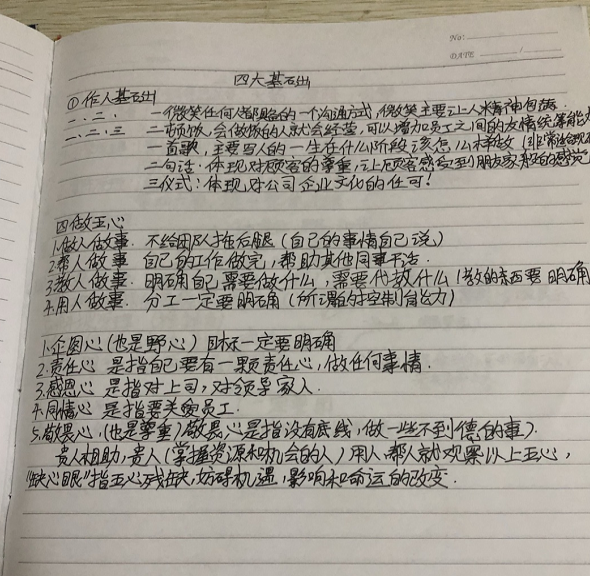 No:
DATE
四大基础
①作人基础
一、二、 一微笑任何人都略的一个沟通方式,微笑主要让人精神包满
一、二、三 二顿饭,会做饭的人就会经营,可以增加员工之间的友情续等能力
一首歌,主要写人的一生在什么阶段该怎么样做(非常法给现
二句话:体现对顾客的尊重,让顾客感受到朋友家和的感觉
三仪式:体现对公司企业文化的任可!
四做五心
1.做人做事.不给团队拖后腿(自己的事情自己说)
2帮人做事 自己的工作做完,帮助其他同事干活.
3.教人做事.明确自己需要做什么,需要代教什么(教的东西要明确
4.用人做事. 分工一定要明确(所谓的控制能力)
1.企图心(也是野心)目标一定要明确
2.责任心 是指自己要有一颗责任心,做任何事情.
3.感恩心 是指对上司,对领导家人.
4.同情心 是指要关爱员工.
5.敬畏心,(也是尊重)敬畏心是指没有底线,做一些不到德的事).
贵人相助,贵人(掌握资源和机会的人)用人,帮人就观察以上五心,
"缺心眼"指五心残缺,妨碍机遇,影响和命运的改变.